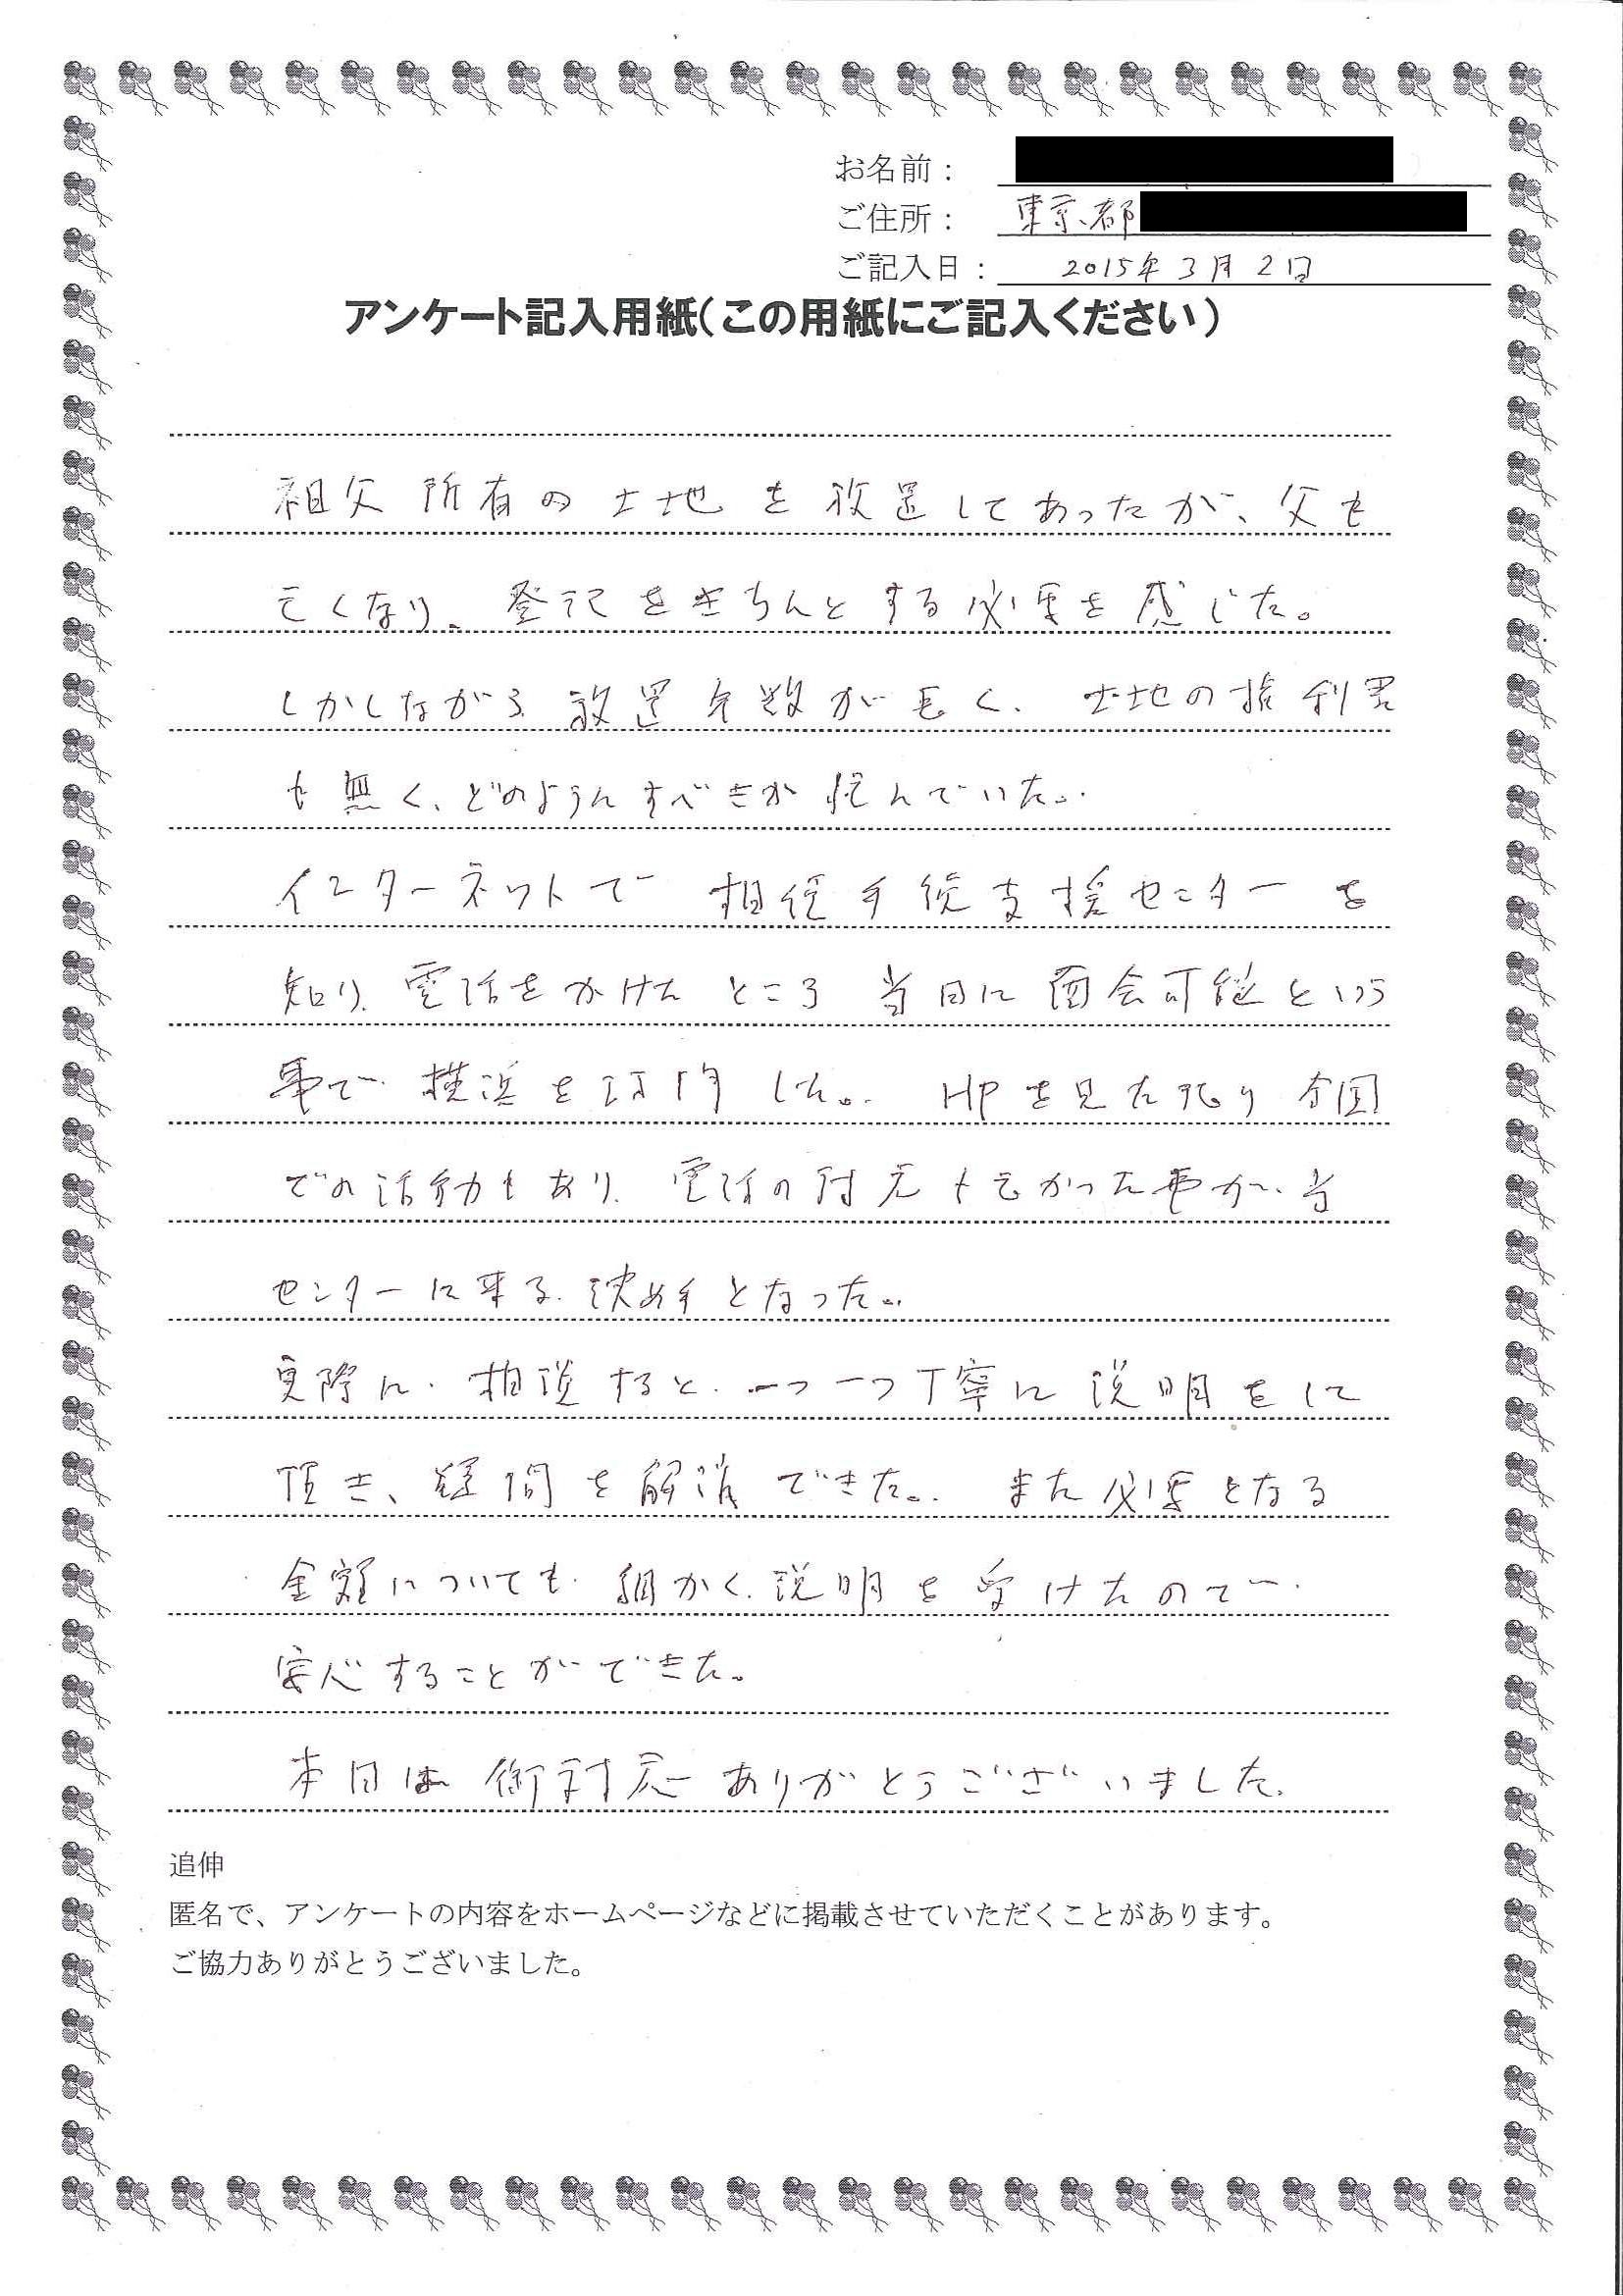 お名前：
ご住所： 東京都
ご記入日： 2015年3月2日
アンケート記入用紙（この用紙にご記入ください）
祖父所有の土地を放置してあったが、父も
亡くなり、登記をきちんとする必要を感じた。
しかしながら、放置年数が長く、土地の権利書
も無く、どのようにすべきか悩んでいた。
インターネットで 相続手続支援センターを
知り、電話をかけたところ 当日に面会可能という
事で、横浜を訪問した。 HPを見た限り 全国
での活動もあり、電話の対応も良かった事が、当
センターに来る、決め手となった。
実際に、相談すると、一つ一つ丁寧に説明をして
頂き、疑問を解消できた。 また必要となる
金額についても、細かく、説明を受けたので、
安心することができた。
本日は御対応ありがとうございました。
追伸
匿名で、アンケートの内容をホームページなどに掲載させていただくことがあります。
ご協力ありがとうございました。